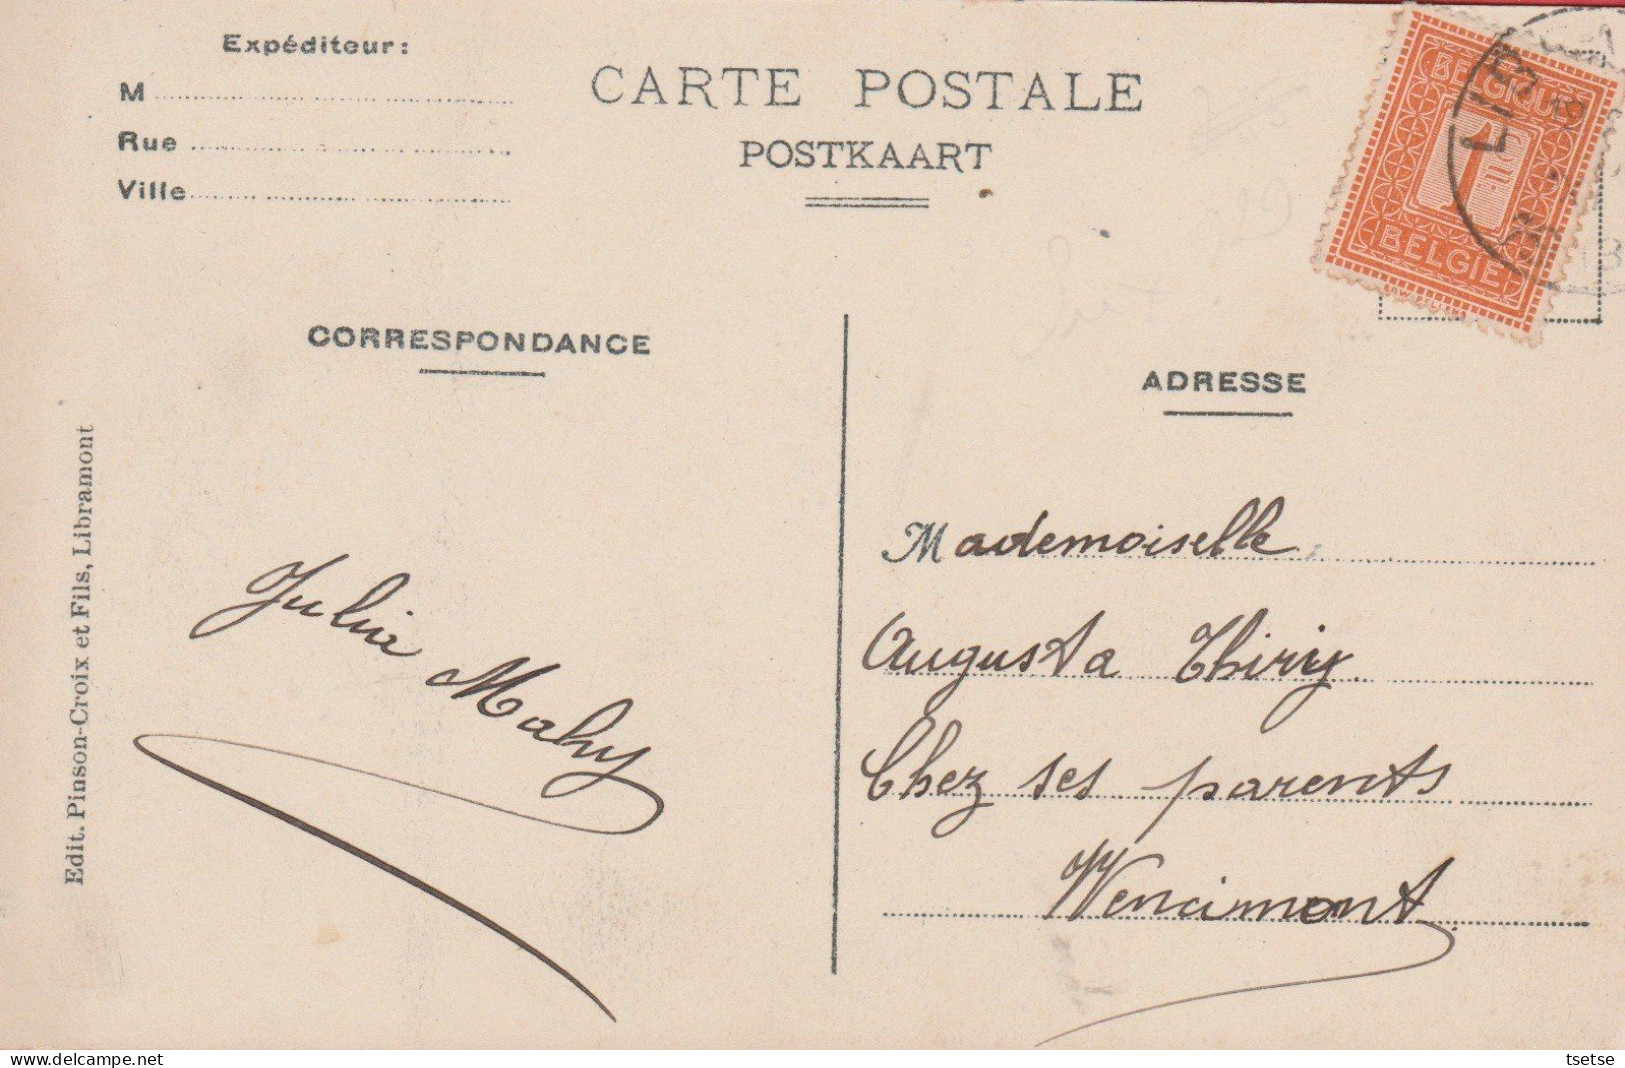 Expéditeur:
M
Rue
Ville
CARTE POSTALE
POSTKAART
BELGIQUE
1
BELGIË
LIB
CORRESPONDANCE
ADRESSE
Edit. Pinson-Croix et Fils, Libramont
Julia Mahy
Mademoiselle
Augusta Thiry
Chez ses parents
Wencimont
delcampe.net
tsetse